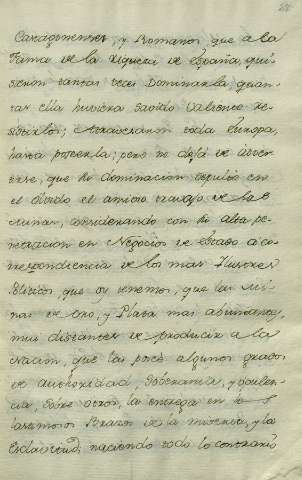 y Romanos que a la
fama de la riqueza de España, qui-
sieron tantas veces Dominarla, quan-
tas ella huviera savido valerosa re-
sistirlos; toda Europa,
hasta poseerla; pero no dejó de
que su dominacion
en el olvido el antiguo travajo de las
minas, considerando con su alta pe-
netracion en Negocios de estado a co-
rrespondiencia de los mas Ilustres
Politicos que oy tenemos, que las mi-
nas de oro, y Plata mas abundantes,
mui distantes de producir a la
Nacion, que las poseé algunos grados
de authoridad, Soberania, y opulen-
cia, sobre otros, la entrega en los
lastimosos Brazos de la miseria, y la
Esclavitud; naciendo todo lo contrario